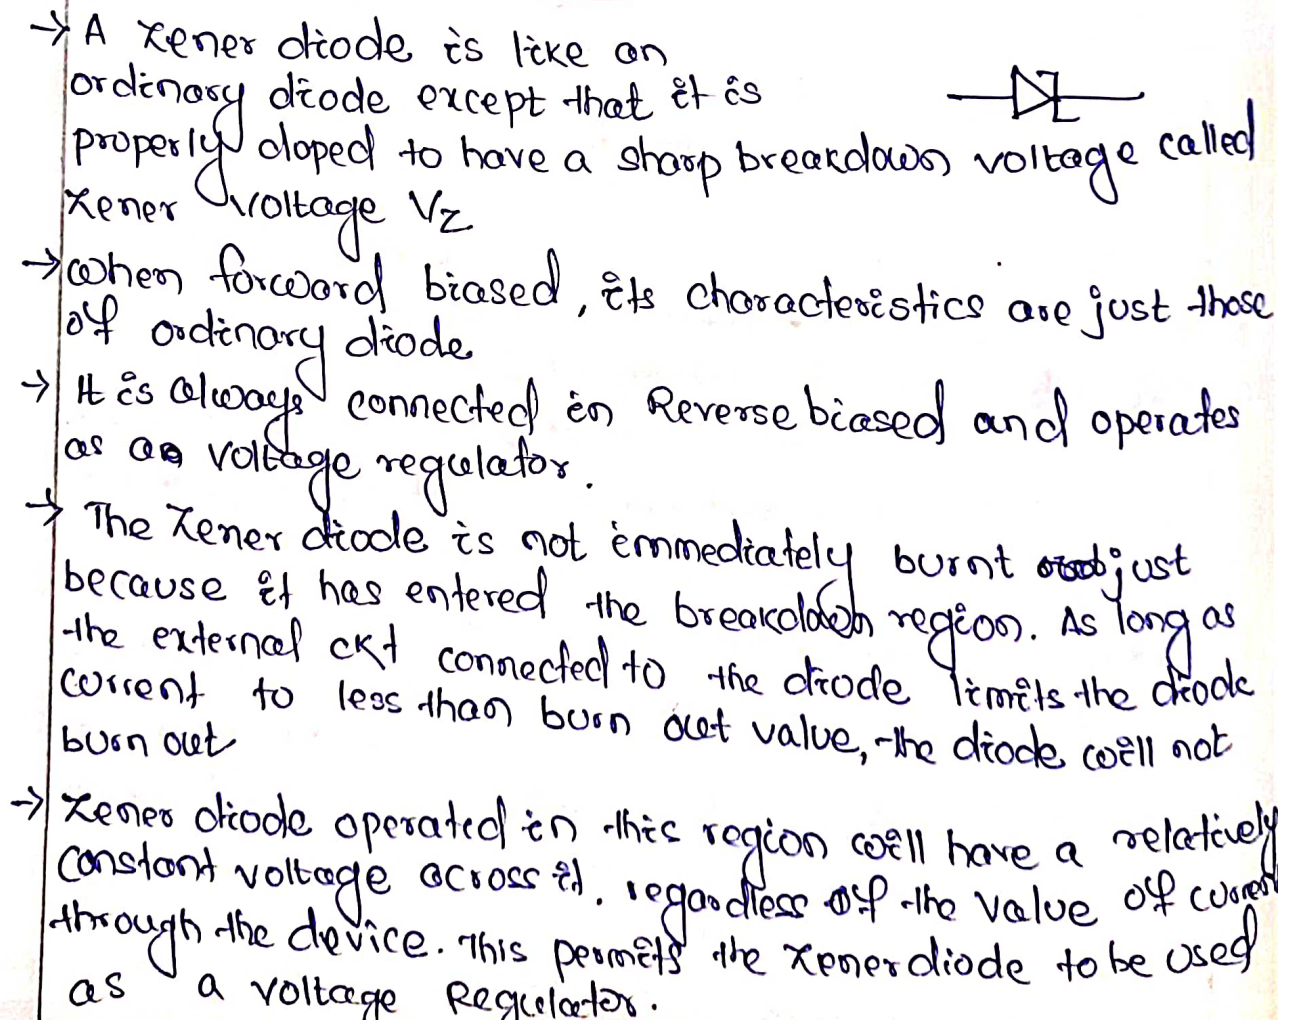 → A Zener diode is like an
ordinary diode except that it is
properly doped to have a sharp breakdown voltage called
Zener voltage Vz
→ When forward biased, its characteristics are just those
of ordinary diode
→ It is always connected in Reverse biased and operates
as a voltage regulator.
→ The Zener diode is not immediately burnt just
because it has entered the breakdown region. As long as
the external ckt connected to the diode limits the diode
current to less than burn out value, the diode will not
burn out
→ Zener diode operated in this region will have a relatively
constant voltage across it. regardless of the value of current
through the device. This permits the Zener diode to be used
as a voltage Regulator.